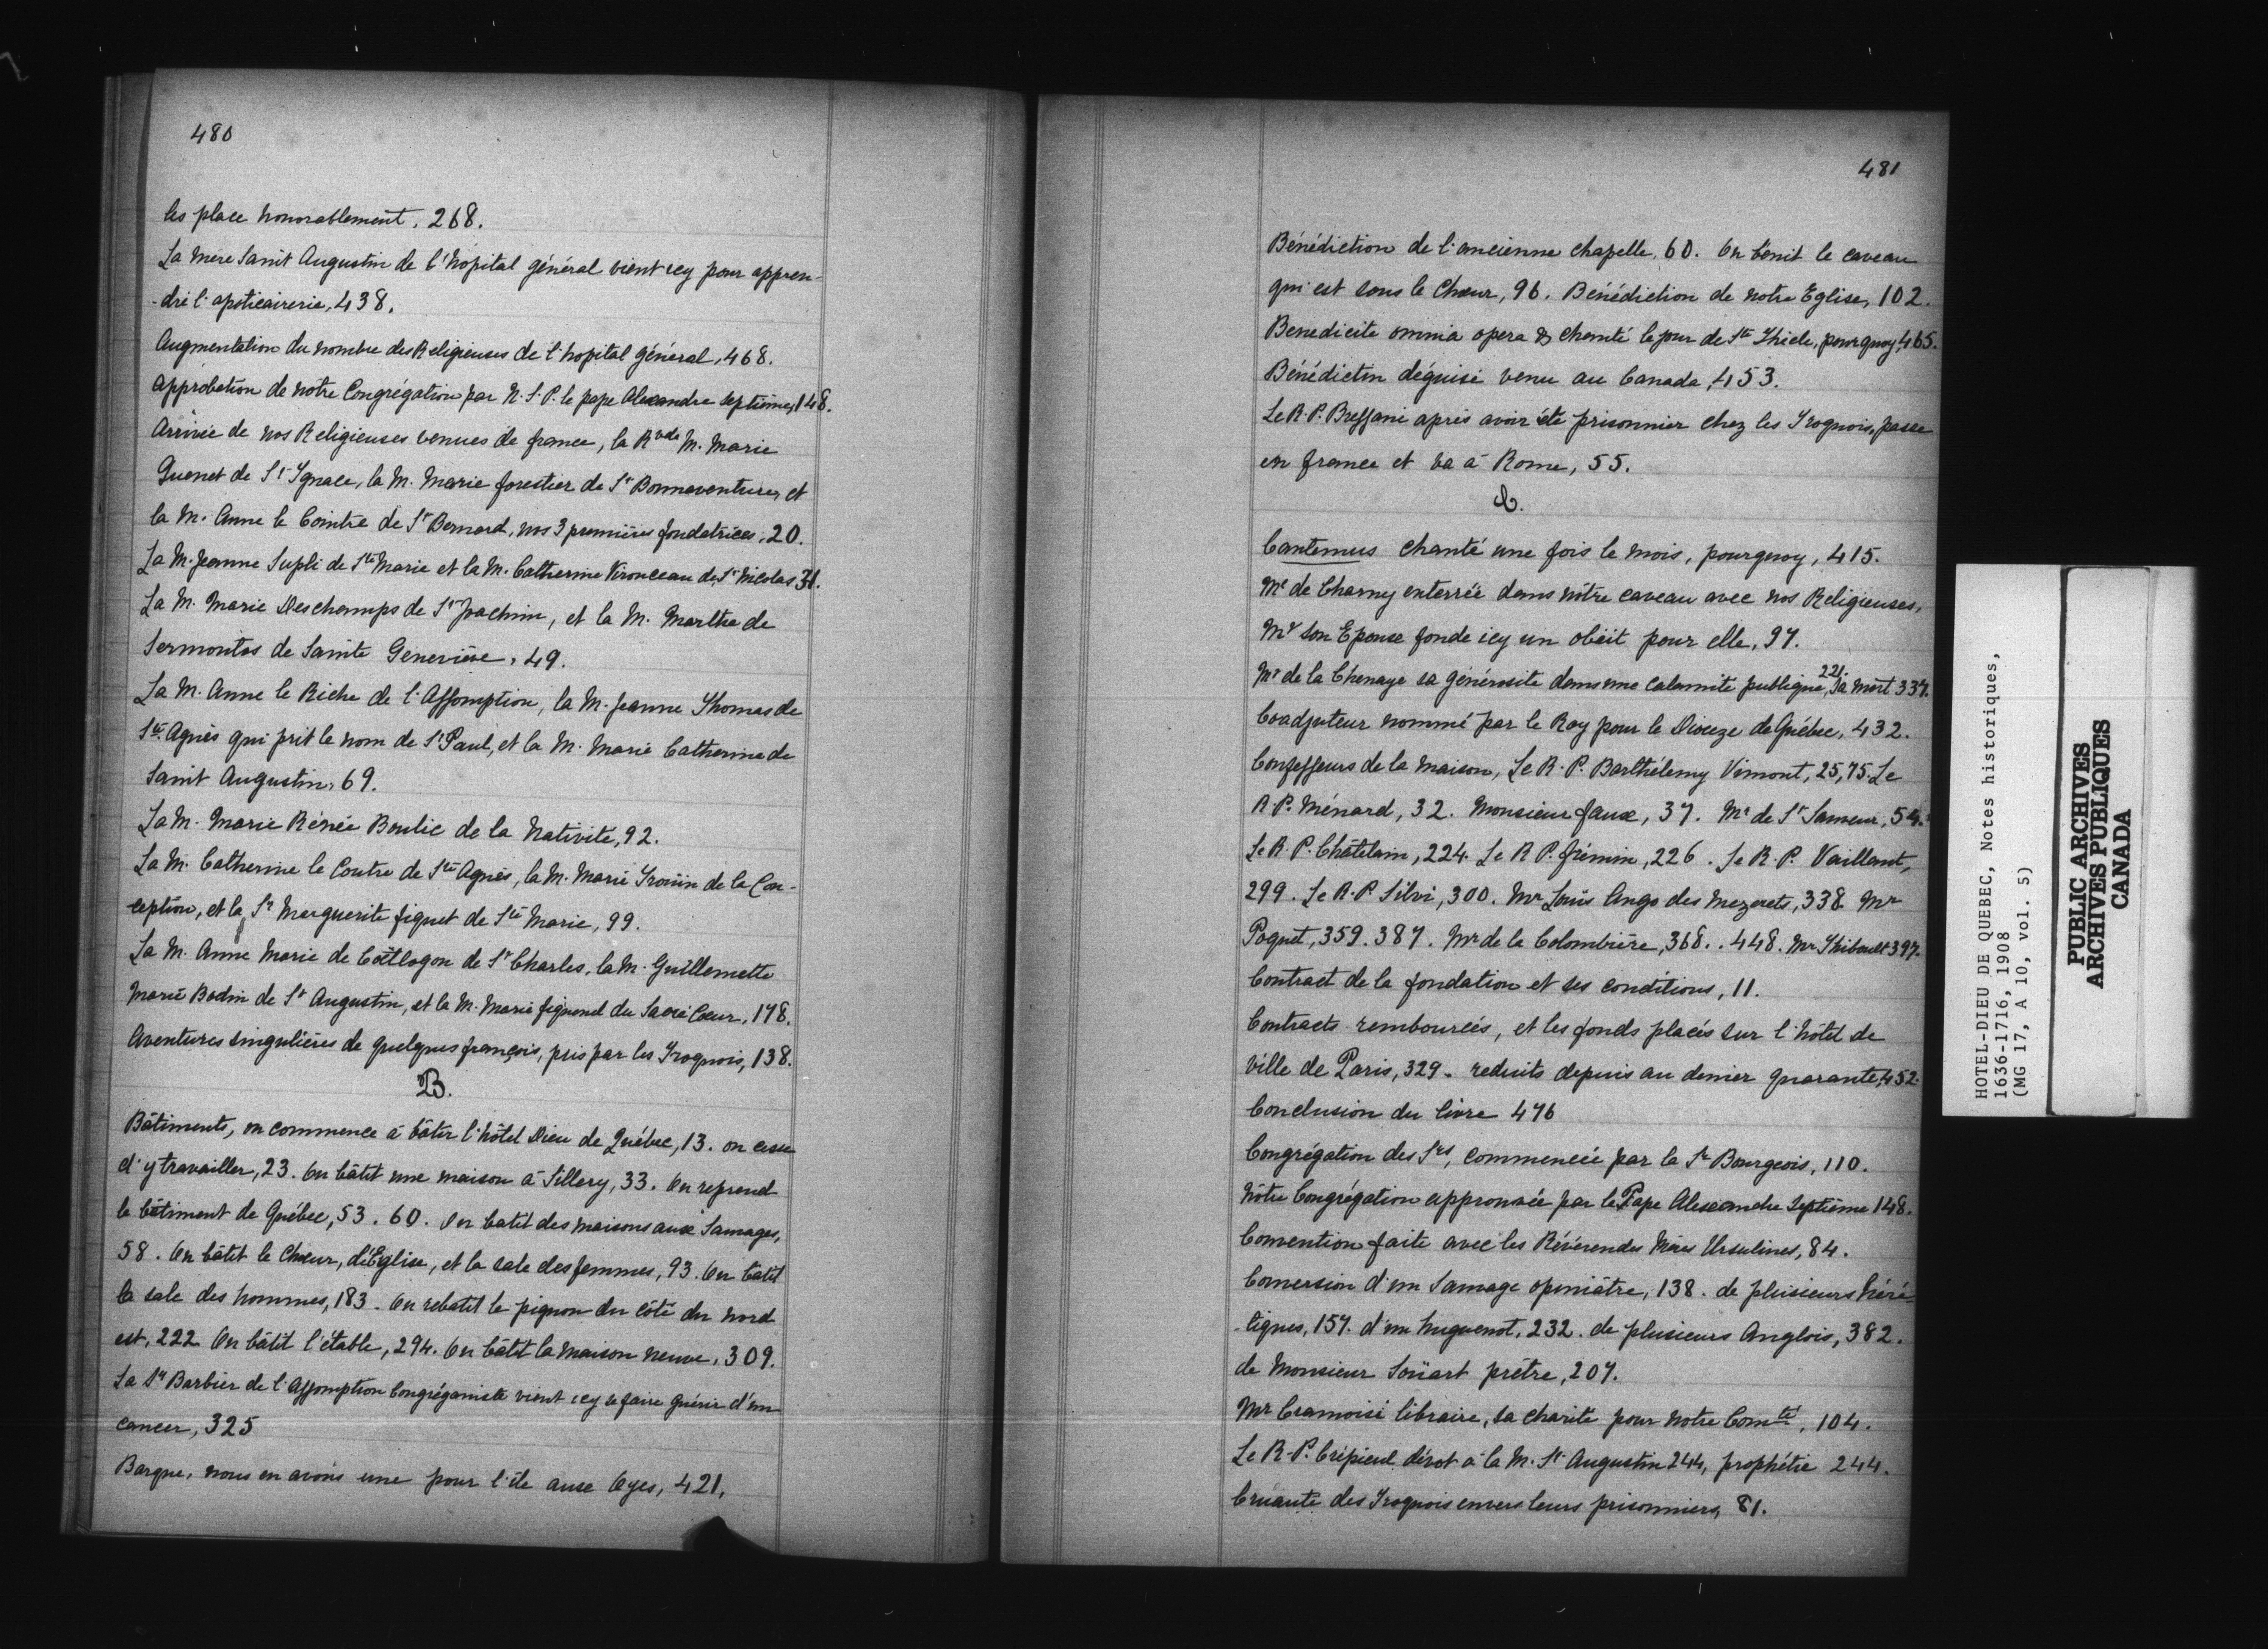 480
les place honorablement, 268.
La mère Saint Augustin de l'hopital général vient icy pour appren-
-dre l'apoticairerie, 438.
Augmentation du nombre des Religieuses de l'hopital général, 468.
Approbation de notre Congrégation par N. S. P. le pape Alexandre septième, 148.
Arrivée de nos Religieuses venues de france, la Rvde M. Marie
Guenet de St Ygnace, la M. Marie forestier de St Bonnaventure, et
la M. Anne le Cointre de St Bernard, nos 3 premières fondatrices, 20.
La M. Jeanne Supli de Ste Marie et la M. Catherine Vironceau de St Nicolas 31.
La M. Marie Deschamps de St Joachim, et la M. Marthe de
Sermontes de Sainte Geneviève, 49.
La M. Anne le Riche de l'Assomption, la M. Jeanne Thomas de
Ste Agnès qui prit le nom de St Paul, et la M. Marie Catherine de
Saint Augustin, 69.
La M. Marie Rénée Boulic de la Nativité, 92.
La M. Catherine le Contre de Ste Agnès, la M. Marie Irouin de la Con-
-ception, et la Sr Marguerite fiquet de Ste Marie, 99.
La M. Anne Marie de Coëtlogon de St Charles, la M. Guillemette
Marie Bodin de St Augustin, et la M. Marie fignand du Sacré Coeur, 178.
Aventures singulières de quelques françois, pris par les Yroquois, 138.
B.
Bâtiments, on commence à bâtir l'hôtel Dieu de Québec, 13. on cesse
d'y travailler, 23. On bâtit une maison à Sillery, 33. On reprend
le bâtiment de Québec, 53. 60. On batit des maisons aux Sauvages,
58. On bâtit le Choeur, l'Eglise, et la sale des femmes, 93. On bâtit
la sale des hommes, 183. On rebatit le pignon du côté du nord
est, 222 On bâtit l'étable, 294. On bâtit la maison neuve, 309.
La Sr Barbier de l'Assomption Congréganiste vient icy se faire guérir d'un
cancer, 325
Barque, nous en avons une pour l'île aux Oyes, 421,
481
Bénédiction de l'ancienne chapelle, 60. On bénit le caveau
qui est sous le Choeur, 96. Bénédiction de notre Eglise, 102.
Benedicite omnia opera & chanté le jour de Ste Thècle, pourquoy, 465.
Bénédictin déguisé venu au Canada, 453.
Le R. P. Bressani après avoir été prisonnier chez les Yroquois, passe
en france et va à Rome, 55.
C.
Cantemus chanté une fois le mois, pourquoy, 415.
Me de Charny enterrée dans nôtre caveau avec nos Religieuses,
Mr son Epoux fonde icy un obiit pour elle, 97.
Mr de la Chenaye sa générosité dans une calamité publique, 221. Sa mort 337.
Coadjuteur nommé par le Roy pour le Diocèze de Québec, 432.
Confesseurs de la maison, Le R. P. Barthélemy Vimont, 25, 75. Le
R. P. Ménard, 32. Monsieur faux, 37. Mr de St Sauveur, 54.
Le R. P. Châtelain, 224. Le R. P. frémin, 226. Le R. P. Vaillant,
299. Le R. P. Silvi, 300. Mr Loüis Ango des Mezerets, 338. Mr
Poquet, 359. 387. Mr de la Colombière, 368. 448. Mr Thiboult 397.
Contract de la fondation et ses conditions, 11.
Contracts remboursés, et les fonds placés sur l'hôtel de
ville de Paris, 329. reduits depuis au denier quarante, 452.
Conclusion du livre 476
Congrégation des Srs, commencée par la Sr Bourgeois, 110.
Nôtre Congrégation approuvée par le Pape Alexandre Septième 148.
Convention faite avec les Révérendes Mères Ursulines, 84.
Conversion d'un Sauvage opiniâtre, 138. de plusieurs héré-
-tiques, 157. d'un huguenot, 232. de plusieurs Anglois, 382.
de Monsieur Soüart prêtre, 207.
Mr Cramoisi libraire, sa charité pour notre Comté, 104.
Le R. P. Crépieul dévot à la M. St Augustin 244, prophétie 244.
Cruauté des Yroquois envers leurs prisonniers, 81.
HOTEL-DIEU DE QUEBEC, Notes historiques,
1636-1716, 1908
(MG 17, A 10, vol. 5)
PUBLIC ARCHIVES
ARCHIVES PUBLIQUES
CANADA